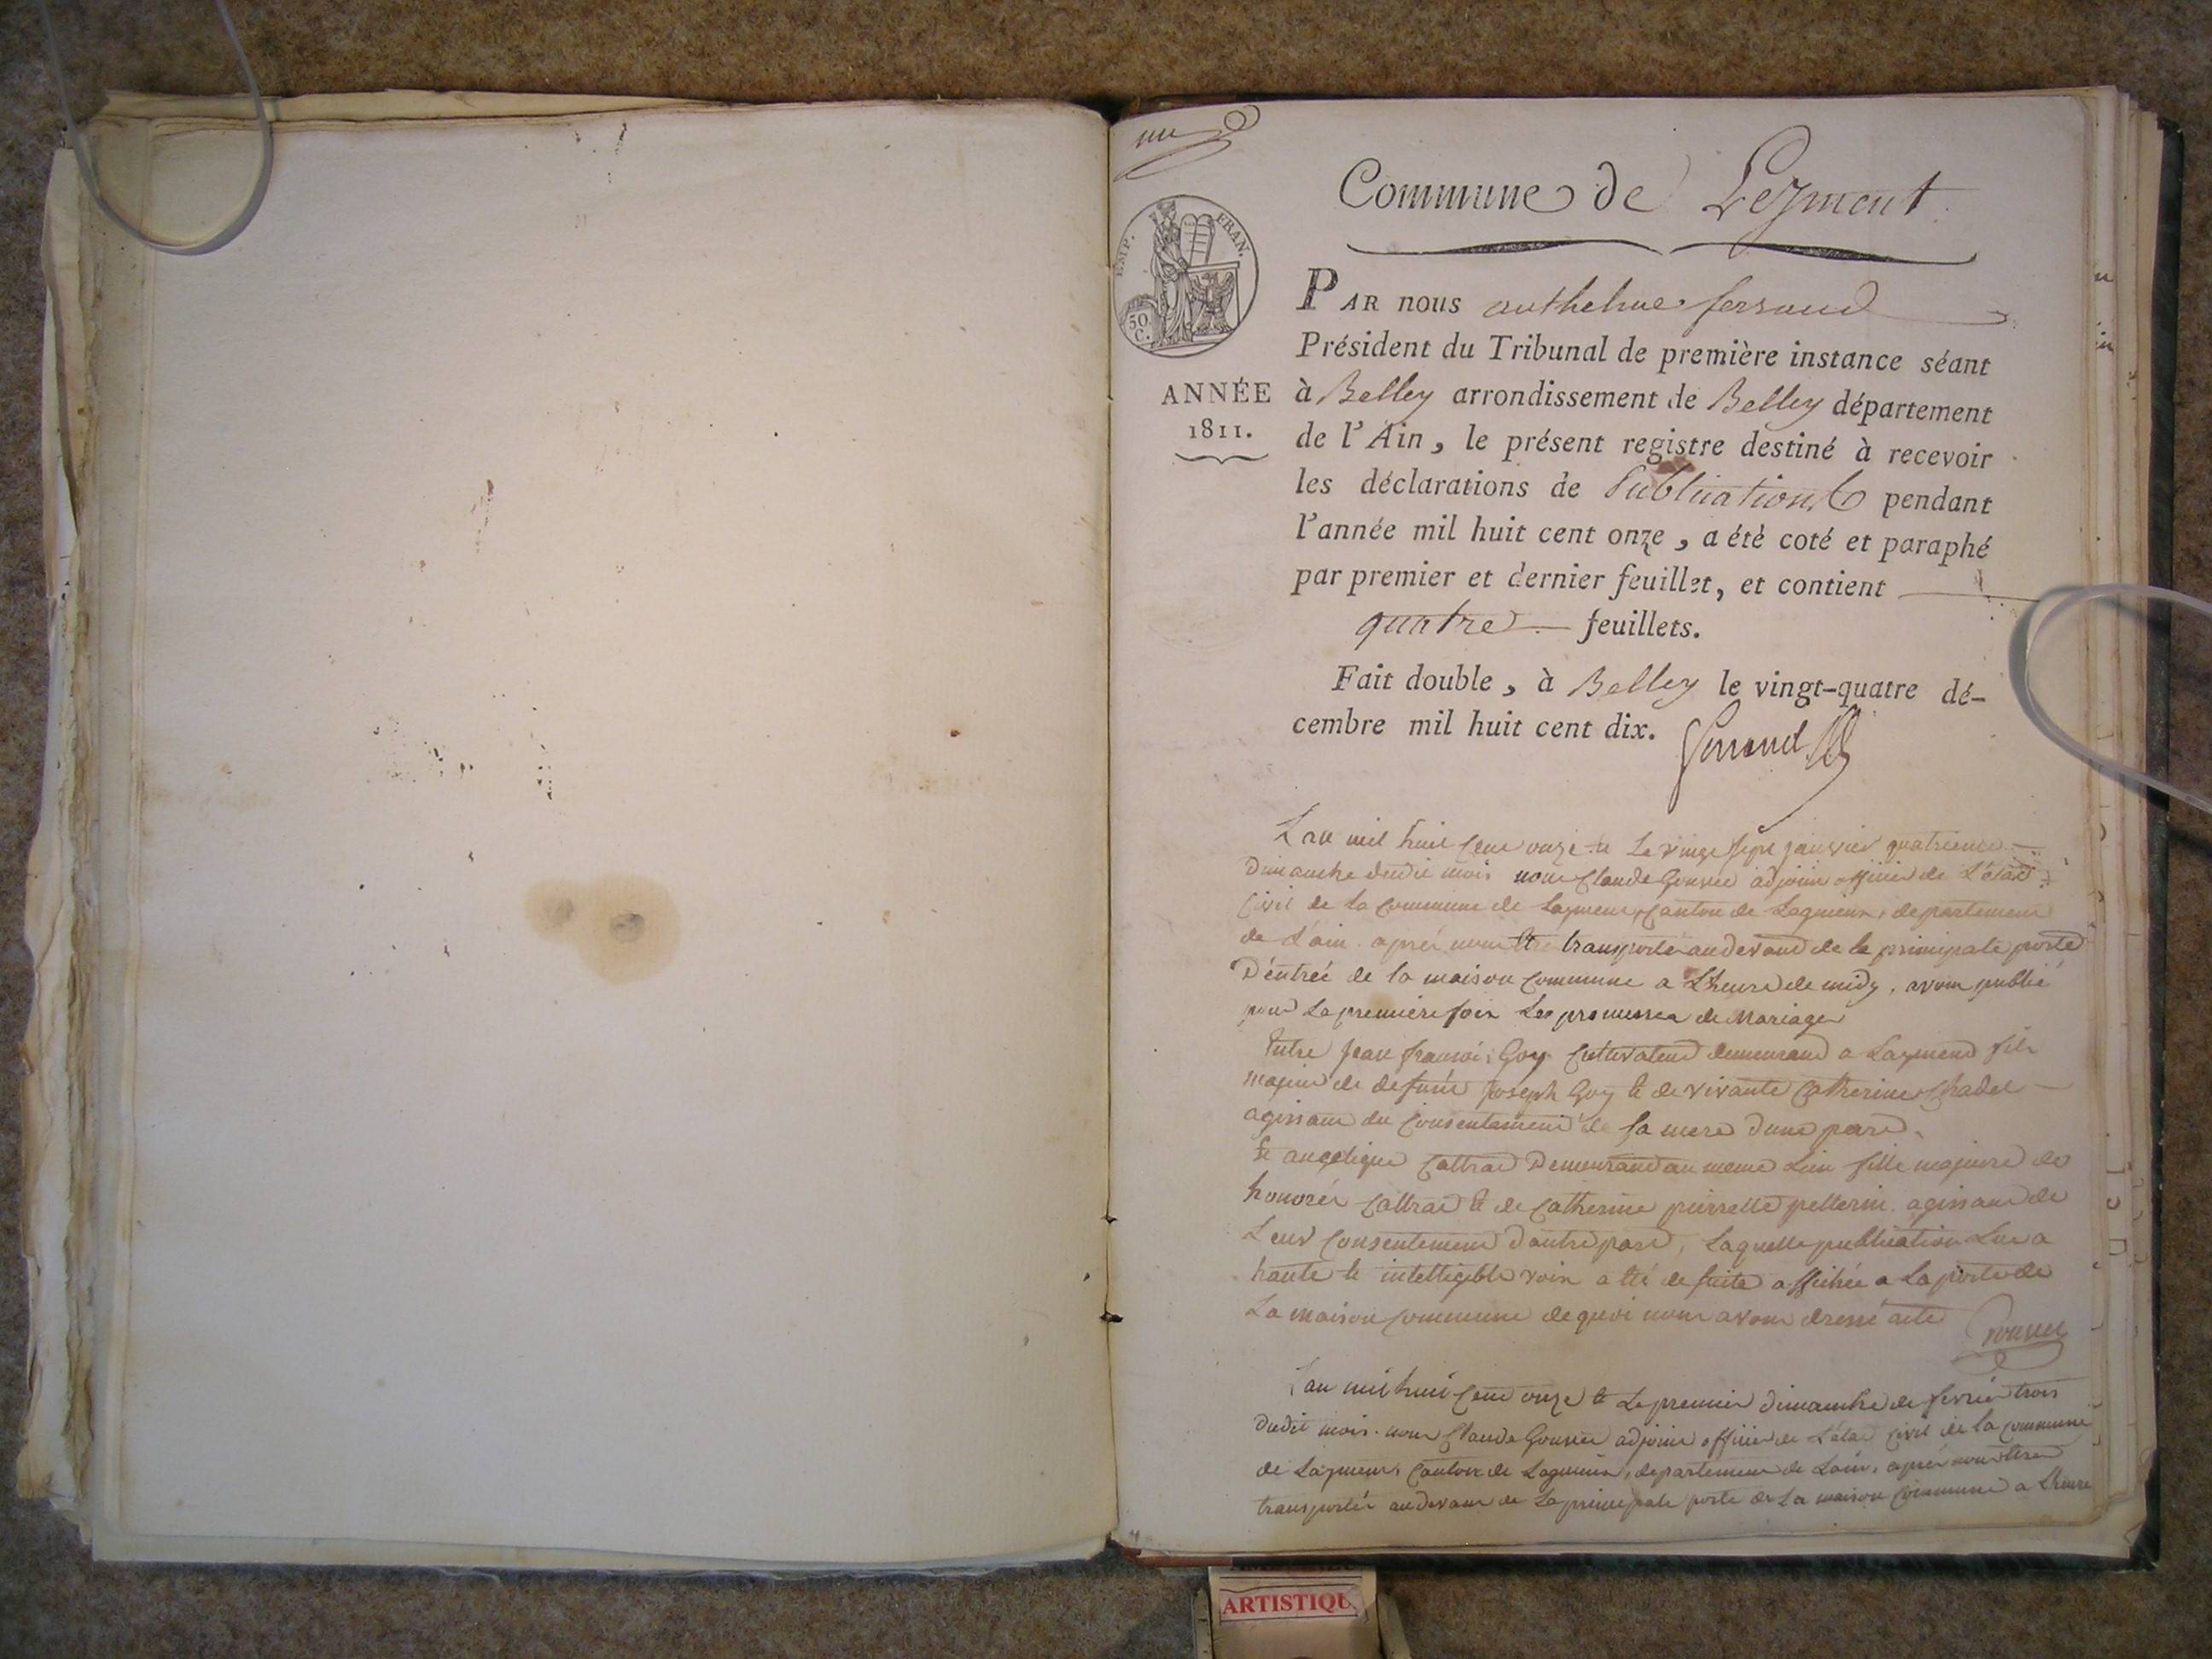 un
Commune de Leyment
EMP. FRAN.
50 C.
ANNÉE
1811.
PAR nous anthelme ferrand
Président du Tribunal de première instance séant
à Belley arrondissement de Belley département
de l'Ain, le présent registre destiné à recevoir
les déclarations de Publications pendant
l'année mil huit cent onze, a été coté et paraphé
par premier et dernier feuillet, et contient
quatre feuillets.
Fait double, à Belley le vingt-quatre dé-
cembre mil huit cent dix.
Ferrand
L'an mil huit cent onze et Le vingt sept janvier quatrieme
Dimanche dudit mois nous Claude Gouvee adjoint officier de L'état
Civil de la Commune de Layment, Canton de Lagnieux, departement
de L'ain. aprés nous être transporté au devant de la principale porte
D'éntrée de la maison Commune a L'heure de midy, avons publié
pour La premiere fois Les promesses de Mariage
Entre Jean francois Goy Cultivateur demeurant a Layment fils
majeur de defunt Joseph Goy et de vivante Catherine
agissant du Consentement de sa mere d'une part,
Et angelique Cattrat Demeurant au meme Lieu fille majeure de
honorée Cattrat et de Catherine pierrette pellerin agissant de
Leur Consentement d'autre part, Laquelle publication Lue a
haute et intelligible voix a été de suite affichée a La porte de
La maison Commune de quoi nous avons dressé acte
Gouvee
L'an mil huit Cent onze et Le premier dimanche de fevrier trois
dudit mois. nous Claude Gouvee adjoint officier de L'état Civil de la Commune
de Layment, Canton de Lagnieux, departement de L'ain, aprés nous être
transporté au devant de La principale porte de La maison Commune a L'heure
ARTISTIQU